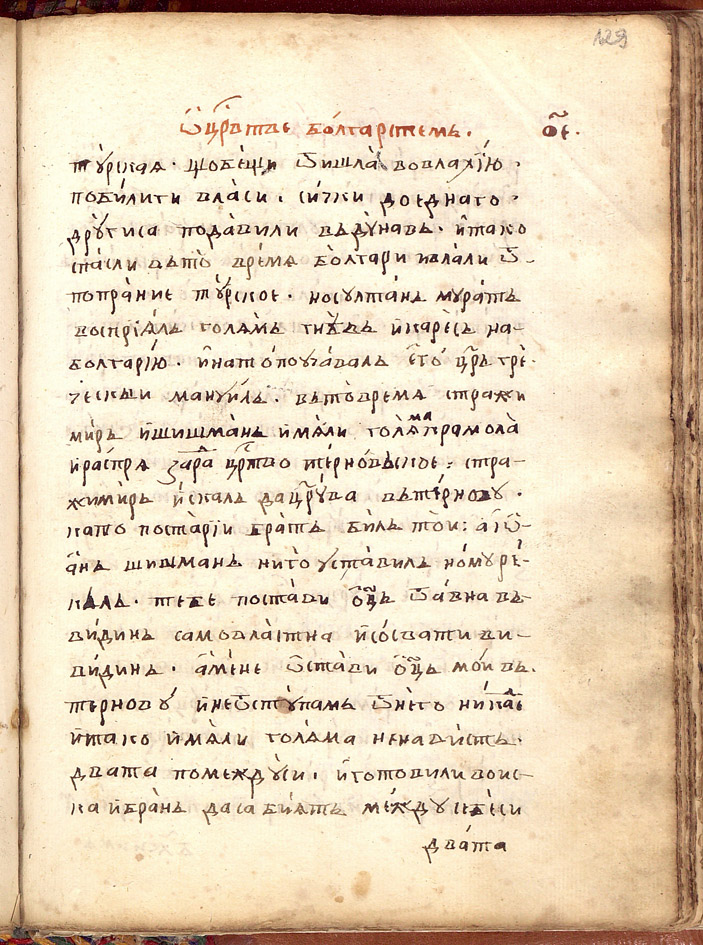 129
Ѡ црⷭ҇твѣ болгарстемь. о҃е.
ту́рская · що бе́щи ѿишла̀ во влахі́ю ·
поби́лити власи · си́чки до еднаго ·
дрꙋгиса пода́вили въ дꙋнавь · и҆ тако
спасли въ то̀ время бо́лгари и влаⷯи ѿ
попра́ние тꙋ́рское · но сꙋлта́нь мꙋра́ть
воспрїя́ль голя́мь гне́вь и҆ каре́сь на
болгарі́ю · и҆ на то поꙋча́валь є҆го̀ цр҃ь гре́
ческїи манꙋи́ль · въ то время стражи
ми́рь и҆ шишма́нь и҆мя́ли голя́ма крамола̀
и҆ ра́спря заради̂ црⷭ҇тво те́рновъское · стра
жими́рь и҆скаль да црⷭ҇тꙋва въ те́рново ·
като поста́рїи брать биль тои · а҆ і҆ѡ
а́нь шишмань нитого ꙋста́виль но мꙋ ре́
каль · тебе поста́ви о҆ц҃ь ѿа́вна въ
ви́динь самовластна и҆ со́свати ви
ви́динь · а҆ мене ѡ҆ста́ви о҆ц҃ь мои въ
терновꙋ̀ и҆ не ѿстꙋпамь ѿ него ника́к
и҆ тако и҆мя́ли голя́ма ненави́сть ·
двата помеждꙋси · и҆ готовили вои
ска и҆ бра́нь да са бїять ме́ждꙋ себеси
два́та